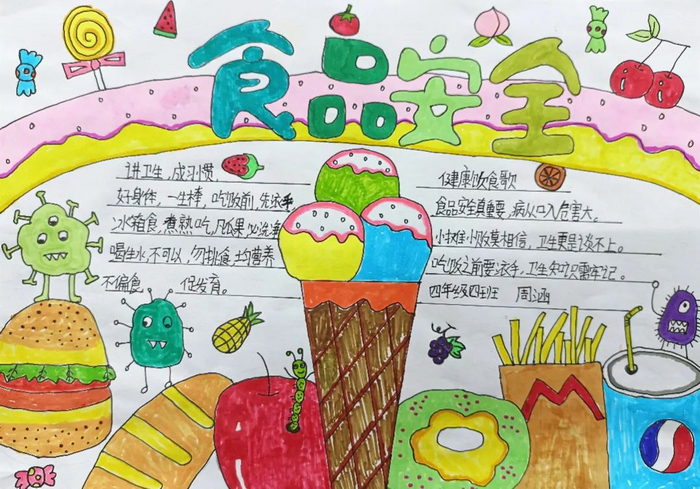 食品安全
讲卫生,成习惯,
好身体,一生棒,吃饭前,先洗手
冰箱食,煮熟吃,凡瓜果必洗净
喝生水,不可以,勿挑食,土均营养
不偏食 促发育。
健康饮食歌
食品安全真重要,病从口入危害大。
小摊小贩莫相信,卫生更是谈不上。
吃饭之前要洗手,卫生知识需牢记。
四年级四班 周涵